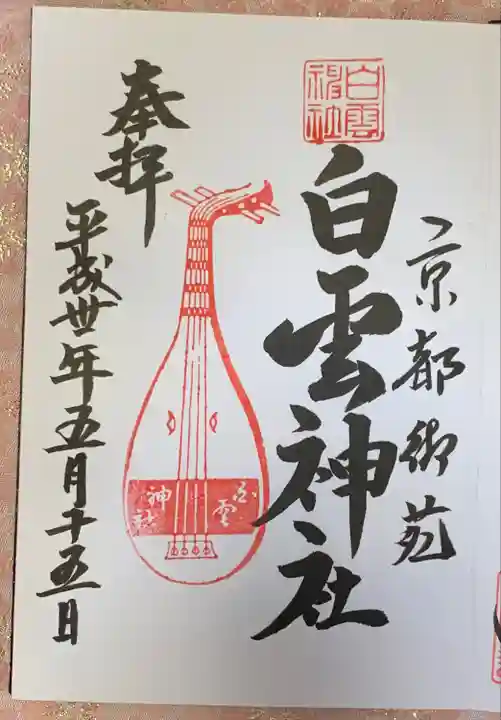 京都御苑
白雲神社
白雲神社
白雲
神社
奉拝
平成卅年五月十五日